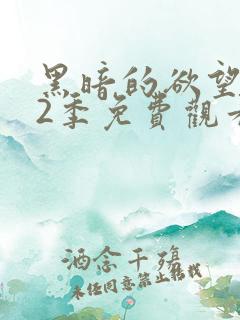 黑暗的欲望
2季免費觀看
酒念千殤
未经同意禁止转载